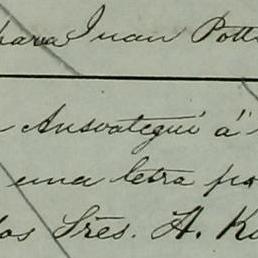 para Juan Pott
Ansuategui á
una letra po
los Sres. H. K